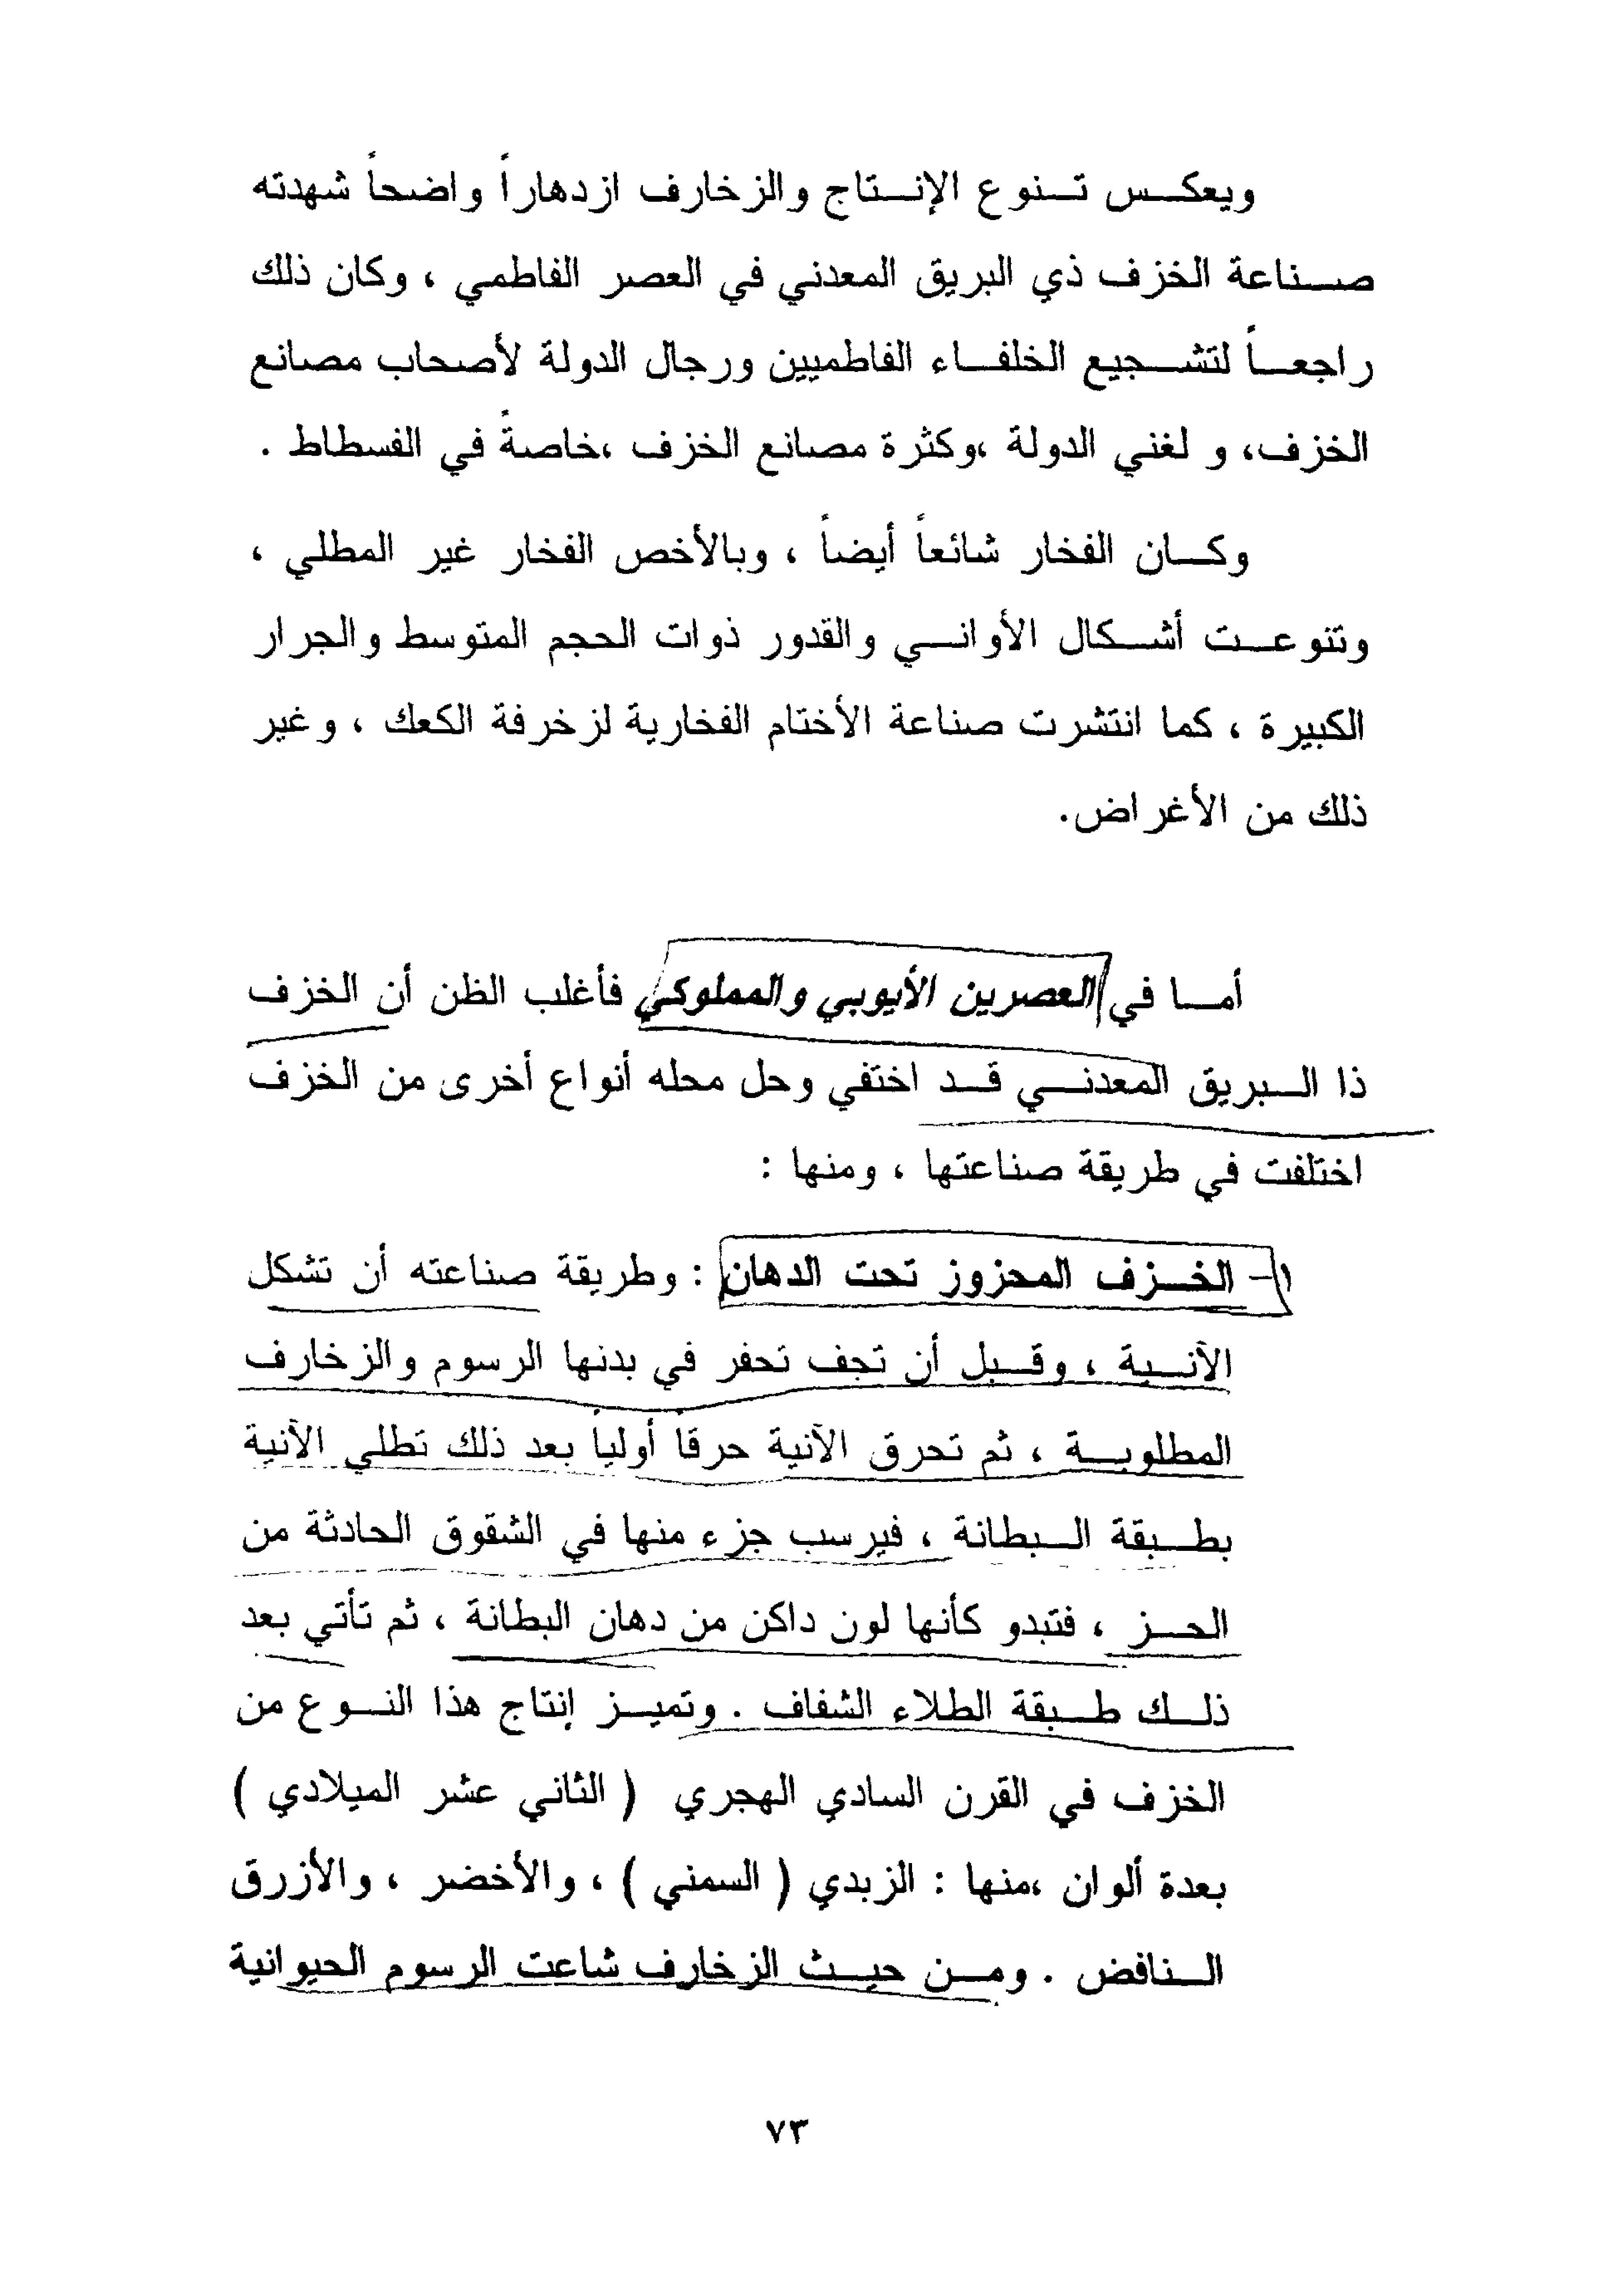 ويعكس تنوع الإنتاج والزخارف ازدهاراً واضحاً شهدته
صناعة الخزف ذي البريق المعدني في العصر الفاطمي ، وكان ذلك
راجعاً لتشجيع الخلفاء الفاطميين ورجال الدولة لأصحاب مصانع
الخزف، و لغني الدولة ،وكثرة مصانع الخزف ،خاصةً في الفسطاط .
وكان الفخار شائعاً أيضاً ، وبالأخص الفخار غير المطلي ،
وتنوعت أشكال الأواني والقدور ذوات الحجم المتوسط والجرار
الكبيرة ، كما انتشرت صناعة الأختام الفخارية لزخرفة الكعك ، وغير
ذلك من الأغراض.
أما في العصرين الأيوبي والمملوكي فأغلب الظن أن الخزف
ذا البريق المعدني قد اختفي وحل محله أنواع أخرى من الخزف
اختلفت في طريقة صناعتها ، ومنها :
١- الخزف المحزوز تحت الدهان : وطريقة صناعته أن تشكل
الآنية ، وقبل أن تجف تحفر في بدنها الرسوم والزخارف
المطلوبة ، ثم تحرق الآنية حرقاً أولياً بعد ذلك تطلي الآنية
بطبقة البطانة ، فيرسب جزء منها في الشقوق الحادثة من
الحز ، فتبدو كأنها لون داكن من دهان البطانة ، ثم تأتي بعد
ذلك طبقة الطلاء الشفاف . وتميز إنتاج هذا النوع من
الخزف في القرن السادي الهجري ( الثاني عشر الميلادي )
بعدة ألوان ،منها : الزبدي ( السمني ) ، والأخضر ، والأزرق
النافض . ومن حيث الزخارف شاعت الرسوم الحيوانية
٧٣